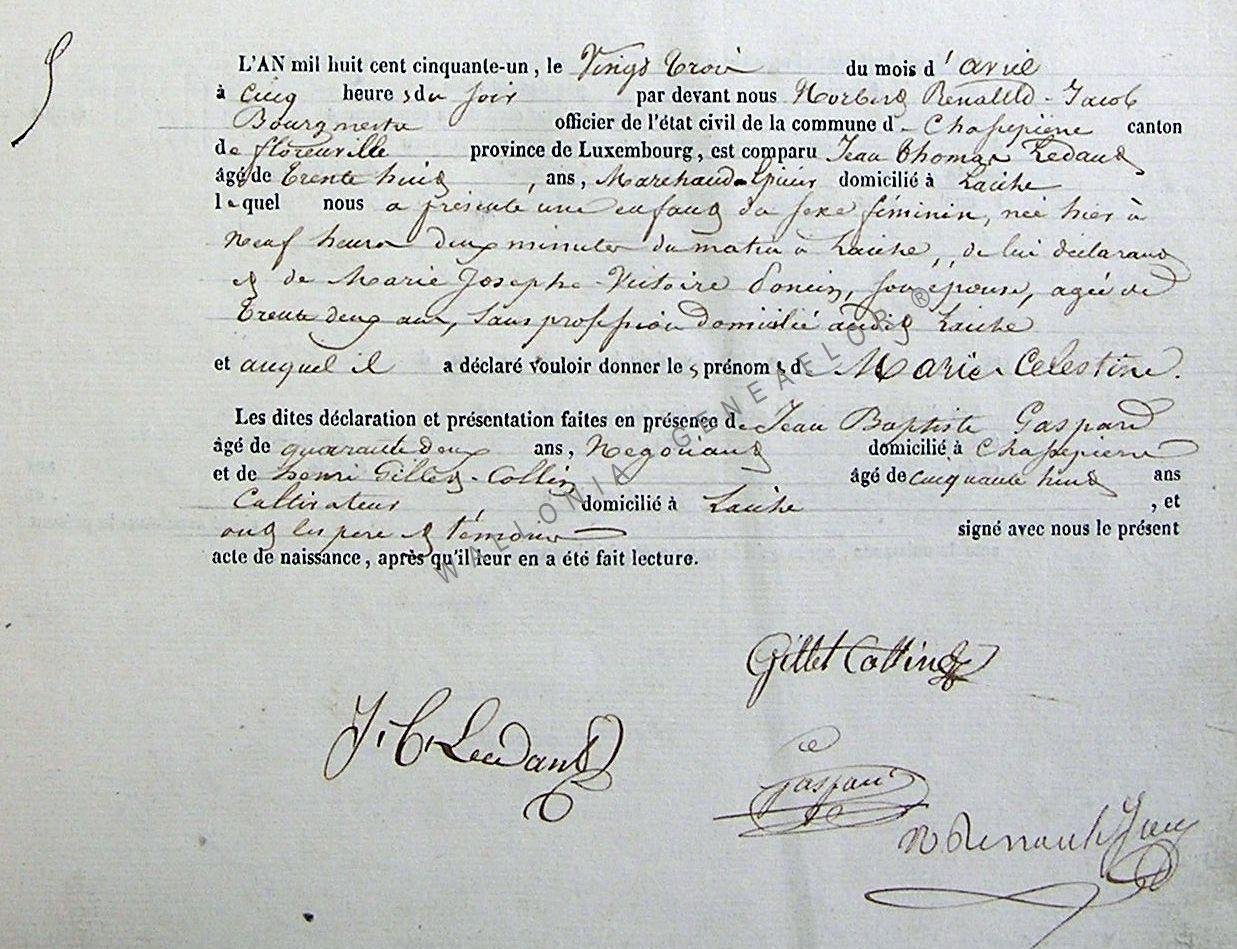 L'AN mil huit cent cinquante-un, le Vingt trois du mois d'avril
à Cinq heures du soir par devant nous Norbert Renauld-Jacob
Bourgmestre officier de l'état civil de la commune de Chassepierre canton
de florenville province de Luxembourg, est comparu Jean thomas Ledant
âgé de trente huit ans, Marchand-épicier domicilié à Laiche
lequel nous a présenté une enfant du sexe féminin, née hier à
neuf heures deux minutes du matin à Laiche, de lui déclarant
et de Marie Josephe Victoire Poncin, son épouse, agée de
trente deux ans, sans profession domicilié audit Laiche
et auquel il a déclaré vouloir donner les prénoms de Marie Celestine.
Les dites déclaration et présentation faites en présence de Jean Baptiste Gaspard
âgé de quarante deux ans, Négociant domicilié à Chassepierre
et de henri Gillet-Collin âgé de cinquante huit ans
Cultivateur domicilié à Laiche, et
ont les père et témoins signé avec nous le présent
acte de naissance, après qu'il leur en a été fait lecture.
WALLONIA GENEAFLOR ®
Gillet Collin
J. T. Ledant
Gaspard
N Renauld Jacob